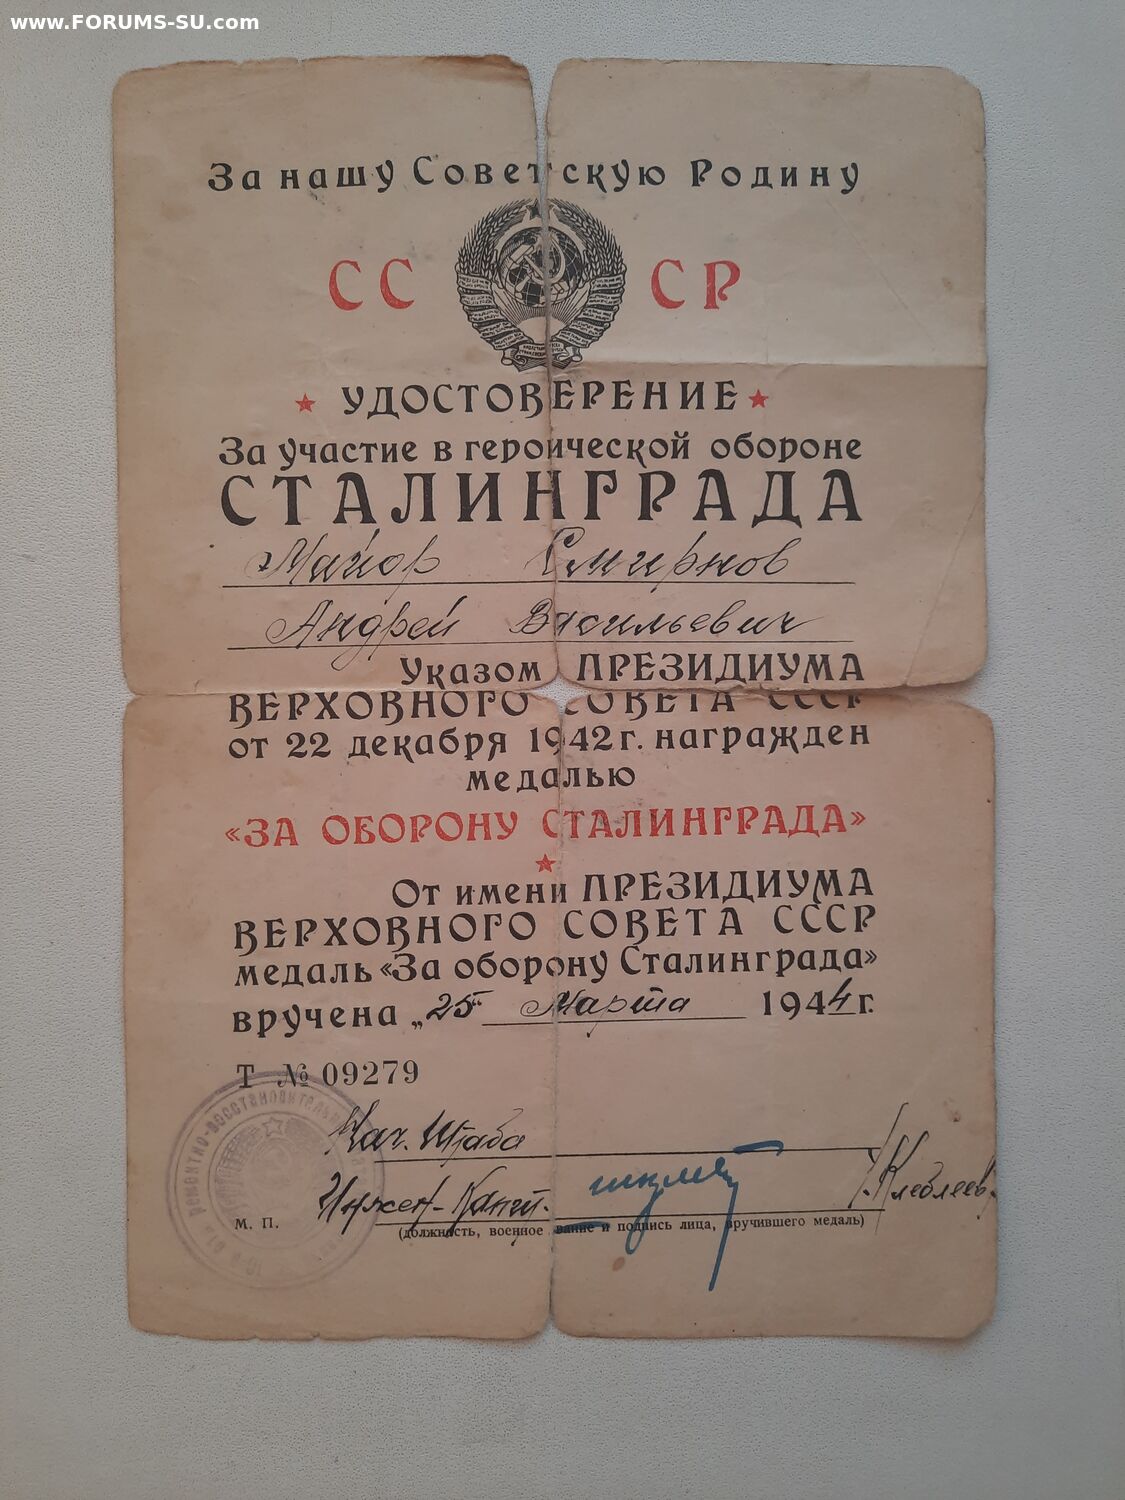 www.FORUMS-SU.com
За нашу Советскую Родину
СССР
УДОСТОВЕРЕНИЕ
За участие в героической обороне
СТАЛИНГРАДА
Майор Смирнов
Андрей Васильевич
Указом ПРЕЗИДИУМА
ВЕРХОВНОГО СОВЕТА СССР
от 22 декабря 1942 г. награжден
медалью
«ЗА ОБОРОНУ СТАЛИНГРАДА»
От имени ПРЕЗИДИУМА
ВЕРХОВНОГО СОВЕТА СССР
медаль «За оборону Сталинграда»
вручена „25“ Марта 1944 г.
Т № 09279
ремонтно-восстановительн
Нач. Штаба
Инжен-Капит.
М. П.
(должность, военное звание и подпись лица, вручившего медаль)